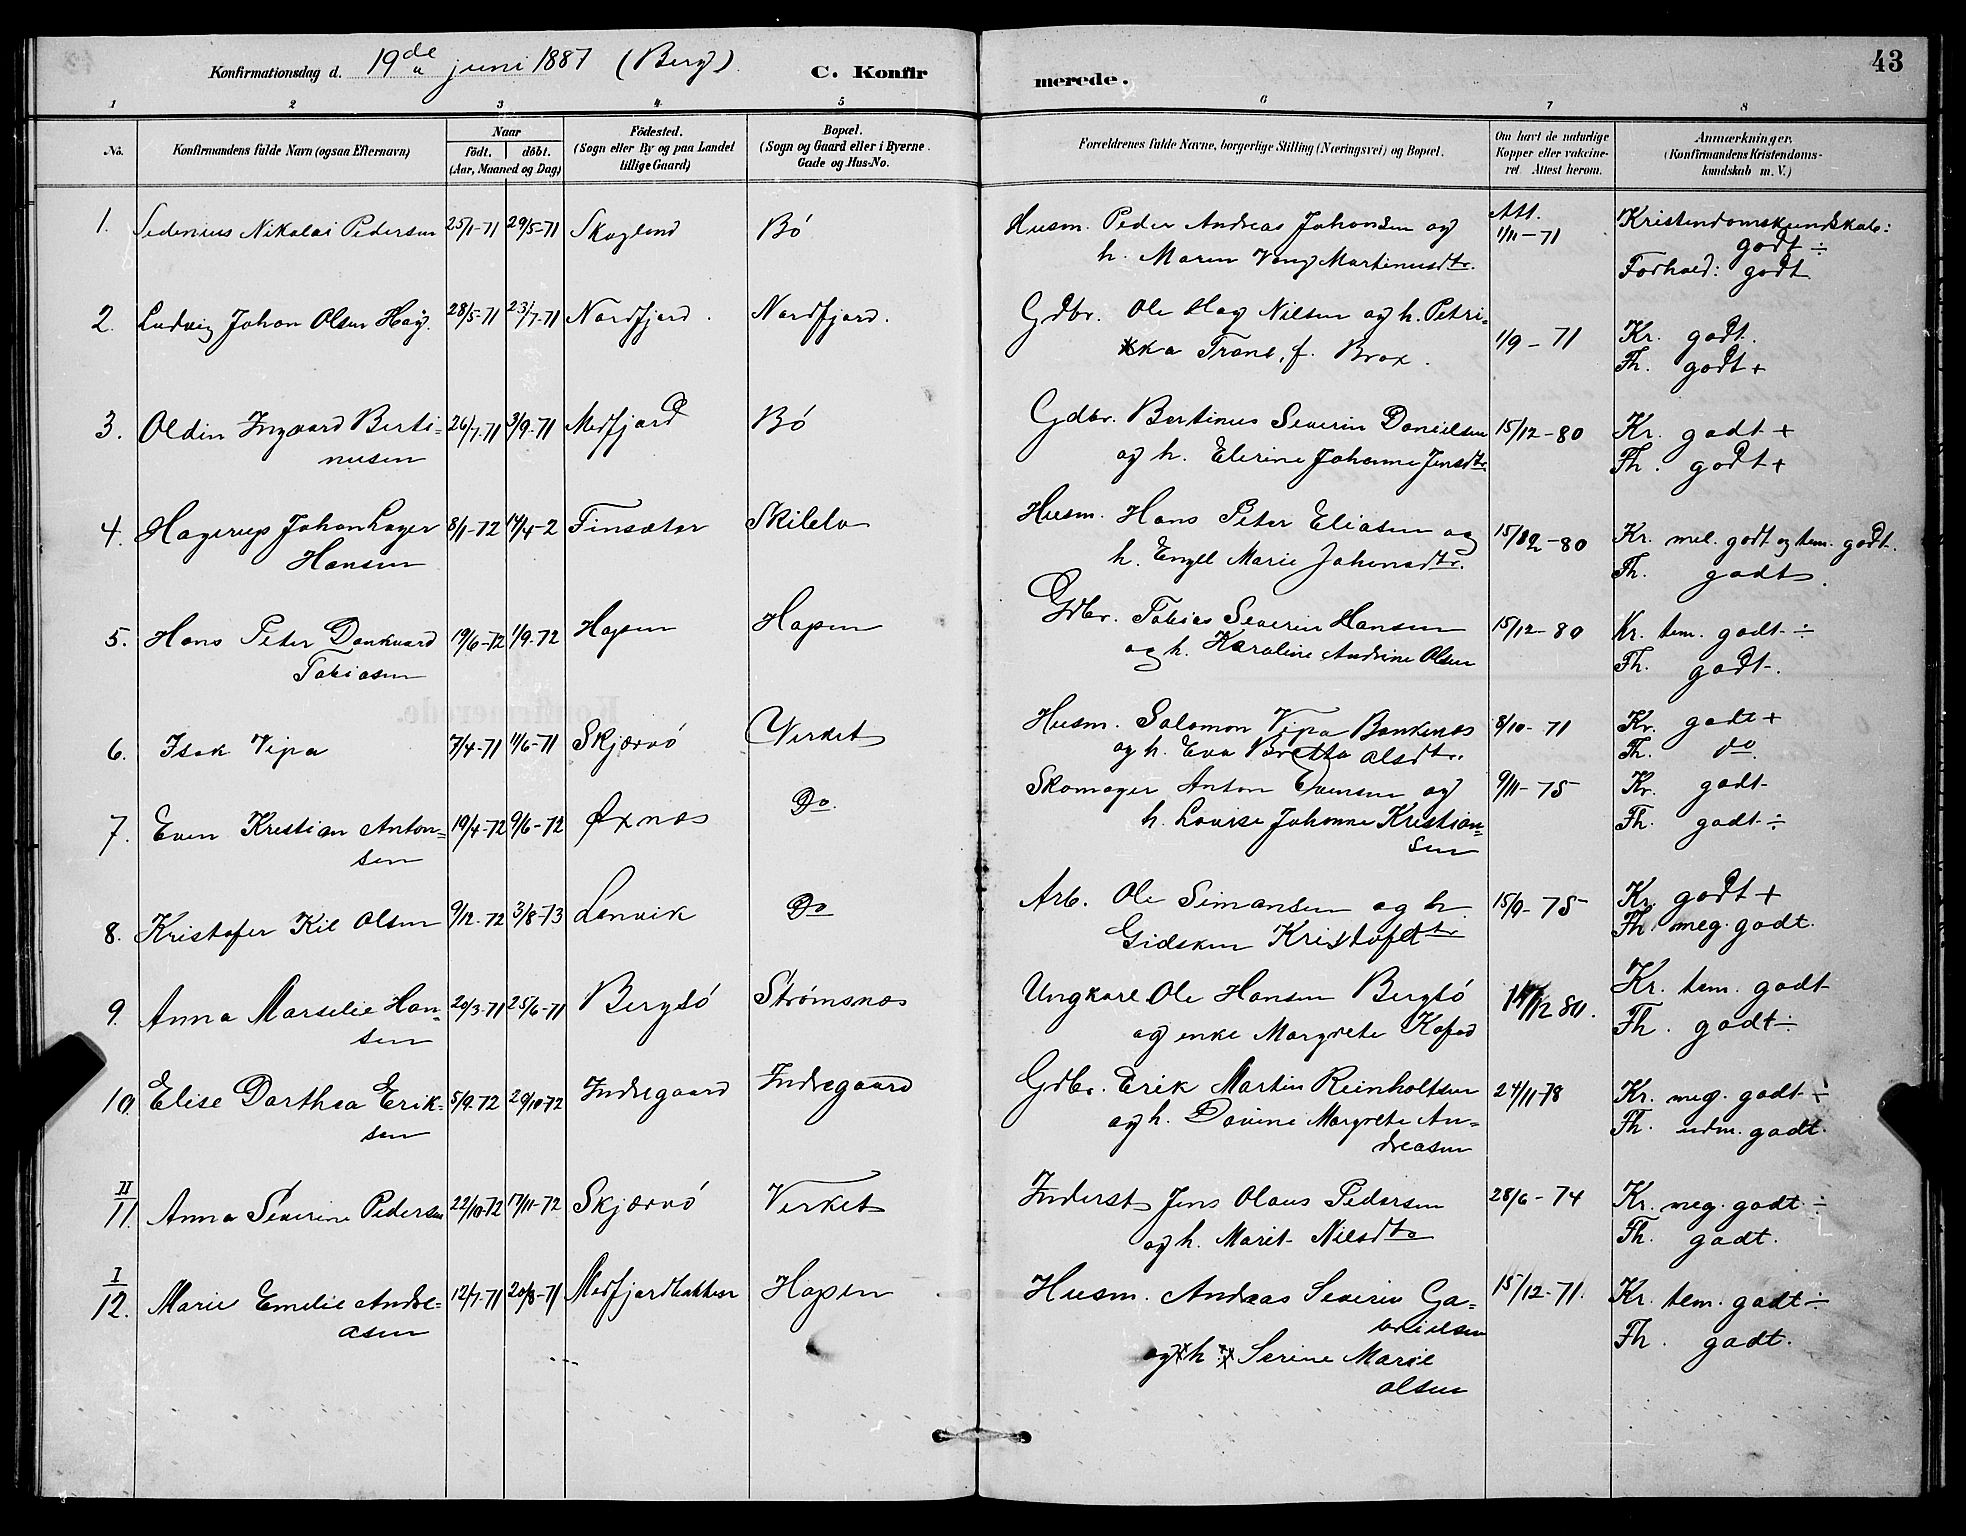 43
Konfirmationsdag d. 19de juni 1887 (Berg). C. Konfirmerede.
1 2 3 4 5 6 7 8
No. Konfirmandens fulde Navn (ogsaa Efternavn) Naar födt. döbt. (Aar, Maaned og Dag) Födested. (Sogn eller By og paa Landet tillige Gaard) Bopæl. (Sogn og Gaard eller i Byerne Gade og Hus-No. Forældrenes fulde Navne, borgerlige Stilling (Næringsvei) og Bopæl. Om havt de naturlige Kopper eller vakcineret. Attest herom. Anmærkninger. (Konfirmandens Kristendomskundskab m. V.)
1. Sedenius Nikolai Pedersen 25/1-71 29/5-71 Skogland Bö Husm. Peder Andreas Johansen og Att. 1/11-71 Kristendomskundskab:
h. Maren Vang Martinusdtr. godt ÷
Forhold: godt
2. Ludvig Johan Olsen Hay. 28/5-71 23/7-71 Nordfjord. Nordfjord. Gdbr. Ole Hay Nilsen og h. Petri- 1/9-71 Kr. godt.
ka Trane, f. Brox. Fh. godt +
3. Oldin Ingvard Berti- 26/7-71 3/9-71 Medfjord Bö Gdbr. Bertinus Severin Danielsen 15/12-80 Kr. godt +
nusen og h. Elerine Johanne Jensdtr. Fh. godt +
4. Hagerup Johan Lager 8/1-72 14/4-2 Finsæter Skilelv Husm. Hans Peter Eliasen og 15/12-80 Kr. mel. godt og tem. godt.
Hansen h. Engel Marie Johansdtr. Fh. godt.
5. Hans Peter Dankvard 19/6-72 1/9-72 Hopen Hopen Gdbr. Tobias Severin Hansen 15/12-80 Kr. tem. godt ÷
Tobiasen og h. Karoline Andrine Olsen Fh. godt.
6. Isak Vipa 7/4-71 11/6-71 Skjærvö Verket Husm. Salomon Vipa Bankenes 8/10-71 Kr. godt +
og h. Eva Bretta Olsdtr. Fh. do
7. Even Kristian Anton- 19/4-72 9/6-72 Øxnes Do. Skomager Anton Evensen og 9/11-75 Kr. godt
sen h. Lovise Johanne Kristian- Fh. godt ÷
sen
8. Kristofer Kil Olsen 9/12-72 3/8-73 Lenvik Do Arb. Ole Simonsen og h. 15/9-75 Kr. godt +
Gidsken Kristofdtr Fh. meg. godt.
9. Anna Marselie Han- 20/3-71 25/6-71 Bergsö Strömsnes Ungkarl Ole Hansen Bergsö 15/12 80. Kr. tem. godt
sen og enke Margrete Kofod Fh. godt ÷
10 Elise Dorthea Erik- 5/9-72 20/10-72 Indregaard Indregaard Gdbr. Erik Martin Reinholtsen 24/11-78 Kr. meg. godt ÷
sen og h. Davine Margrete An- Fh. udm. godt.
dreasen
II
11. Anna Severine Pedersen 22/10-72 17/11-72 Skjærvö Verket Inderst Jens Olaus Pedersen 28/6-74 Kr. meg. godt ÷
og h. Marit Nilsdtr Fh. godt.
I
12. Marie Emilie Andre- 12/7-71 20/8-71 Medfjordbakken Hopen Husm. Andreas Severin Ga- 15/12-71. Kr. tem. godt ÷
asen brielsen Fh. godt.
og h Serine Marie
Olsen